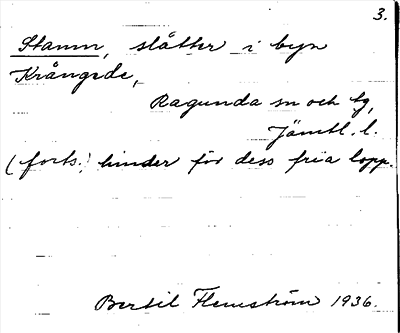 3.
Stamn, slåtter i byn
Krångede,
Ragunda sn och tg,
Jämtl. l.
(forts.) hinder för dess fria lopp.
Bertil Flemström 1936.